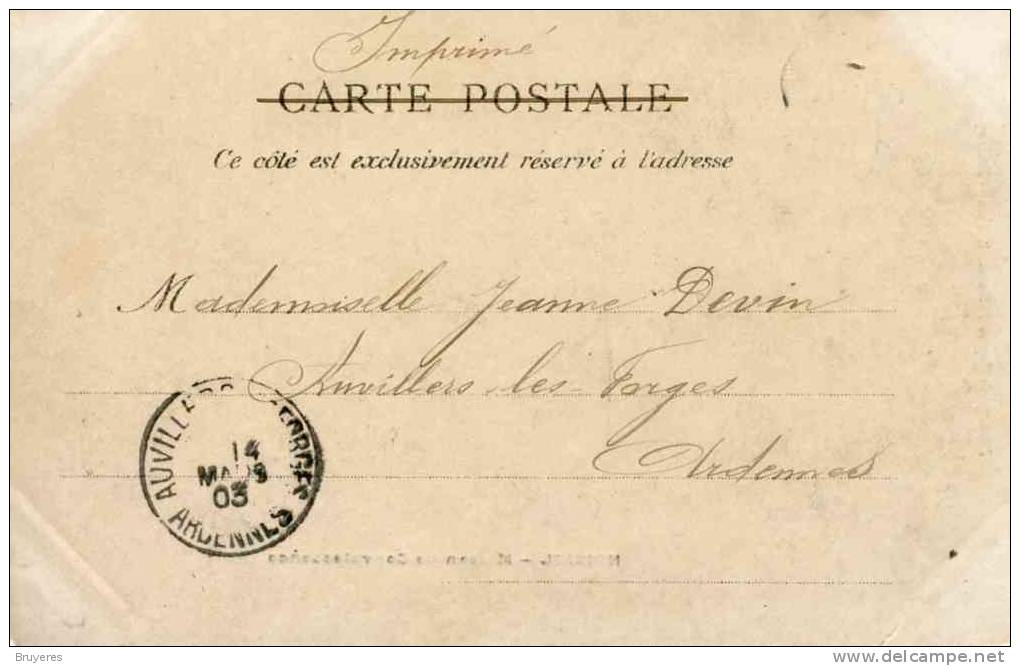 Imprimé
CARTE POSTALE
Ce côté est exclusivement réservé à l'adresse
Mademoiselle Jeanne Devin
Auvillers-les-Forges
Ardennes
14
MARS
03
ARDENNES
Bruyeres
www.delcampe.net